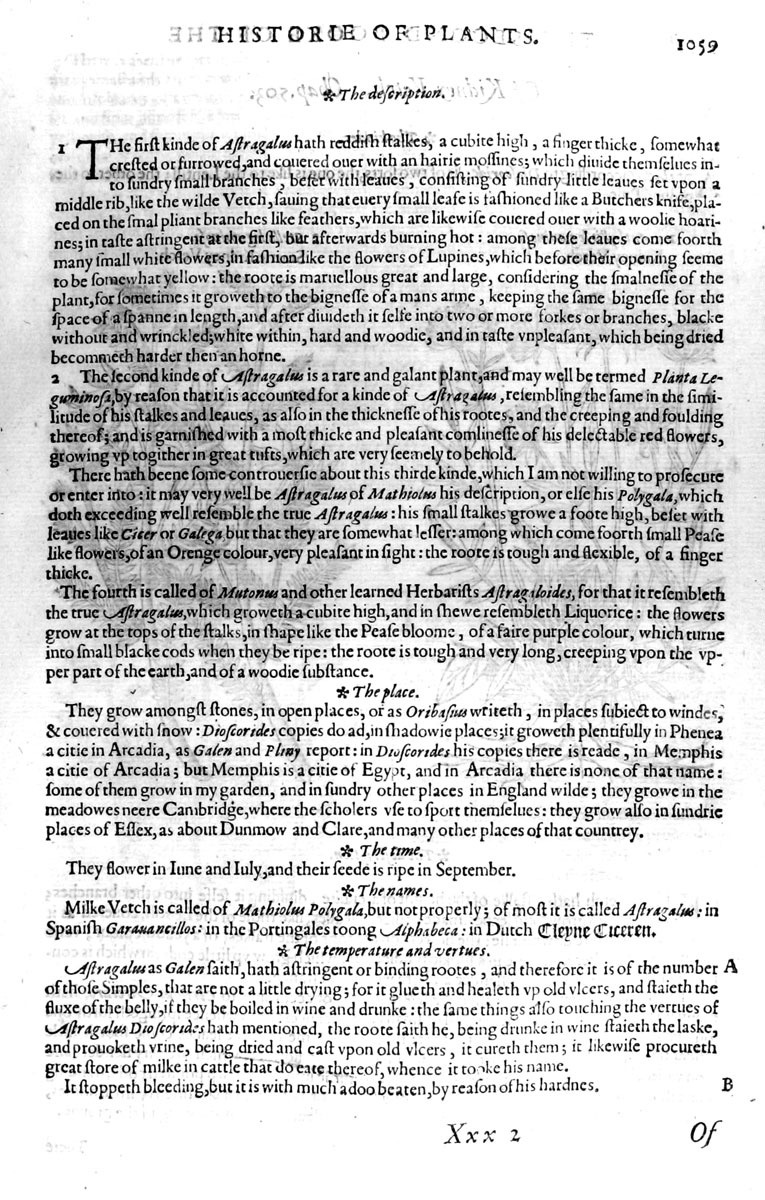 HISTORIE OF PLANTS.
1059
❧ The deſcription.
1 THe firſt kinde of Aſtragalus hath reddiſh ſtalkes, a cubite high, a finger thicke, ſomewhat
creſted or furrowed, and couered ouer with an hairie moſſines; which diuide themſelues in-
to ſundry ſmall branches, beſet with leaues, conſiſting of ſundry little leaues ſet vpon a
middle rib, like the wilde Vetch, ſauing that euery ſmall leafe is faſhioned like a Butchers knife, pla-
ced on the ſmal pliant branches like feathers, which are likewiſe couered ouer with a woolie hoari-
nes; in taſte aſtringent at the firſt, but afterwards burning hot: among theſe leaues come foorth
many ſmall white flowers, in faſhion like the flowers of Lupines, which before their opening ſeeme
to be ſomewhat yellow: the roote is maruellous great and large, conſidering the ſmalneſſe of the
plant, for ſometimes it groweth to the bigneſſe of a mans arme, keeping the ſame bigneſſe for the
ſpace of a ſpanne in length, and after diuideth it ſelfe into two or more forkes or branches, blacke
without and wrinckled; white within, hard and woodie, and in taſte vnpleaſant, which being dried
becommeth harder then an horne.
2 The ſecond kinde of Aſtragalus is a rare and galant plant, and may well be termed Planta Le-
guminoſa, by reaſon that it is accounted for a kinde of Aſtragalus, reſembling the ſame in the ſimi-
litude of his ſtalkes and leaues, as alſo in the thickneſſe of his rootes, and the creeping and foulding
thereof; and is garniſhed with a moſt thicke and pleaſant comlineſſe of his delectable red flowers,
growing vp togither in great tufts, which are very ſeemely to behold.
There hath beene ſome controuerſie about this thirde kinde, which I am not willing to proſecute
or enter into: it may very well be Aſtragalus of Mathiolus his deſcription, or elſe his Polygala, which
doth exceeding well reſemble the true Aſtragalus: his ſmall ſtalkes growe a foote high, beſet with
leaues like Cicer or Galega, but that they are ſomewhat leſſer: among which come foorth ſmall Peaſe
like flowers, of an Orenge colour, very pleaſant in ſight: the roote is tough and flexible, of a finger
thicke.
The fourth is called of Mutonus and other learned Herbariſts Aſtragaloides, for that it reſembleth
the true Aſtragalus, which groweth a cubite high, and in ſhewe reſembleth Liquorice: the flowers
grow at the tops of the ſtalks, in ſhape like the Peaſe bloome, of a faire purple colour, which turne
into ſmall blacke cods when they be ripe: the roote is tough and very long, creeping vpon the vp-
per part of the earth, and of a woodie ſubſtance.
❧ The place.
They grow amongſt ſtones, in open places, or as Oribaſius writeth, in places ſubiect to windes,
& couered with ſnow: Dioſcorides copies do ad, in ſhadowie places; it groweth plentifully in Phenea
a citie in Arcadia, as Galen and Pliny report: in Dioſcorides his copies there is reade, in Memphis
a citie of Arcadia; but Memphis is a citie of Egypt, and in Arcadia there is none of that name:
ſome of them grow in my garden, and in ſundry other places in England wilde; they growe in the
meadowes neere Cambridge, where the ſcholers vſe to ſport themſelues: they grow alſo in ſundrie
places of Eſſex, as about Dunmow and Clare, and many other places of that countrey.
❧ The time.
They flower in Iune and Iuly, and their ſeede is ripe in September.
❧ The names.
Milke Vetch is called of Mathiolus Polygala, but not properly; of moſt it is called Aſtragalus: in
Spaniſh Garauancillos: in the Portingales toong Alphabeca: in Dutch Cleyne Ciceren.
❧ The temperature and vertues.
Aſtragalus as Galen ſaith, hath aſtringent or binding rootes, and therefore it is of the number A
of thoſe Simples, that are not a little drying; for it glueth and healeth vp old vlcers, and ſtaieth the
fluxe of the belly, if they be boiled in wine and drunke: the ſame things alſo touching the vertues of
Aſtragalus Dioſcorides hath mentioned, the roote ſaith he, being drunke in wine ſtaieth the laske,
and prouoketh vrine, being dried and caſt vpon old vlcers, it cureth them; it likewiſe procureth
great ſtore of milke in cattle that do eate thereof, whence it tooke his name.
It ſtoppeth bleeding, but it is with much adoo beaten, by reaſon of his hardnes. B
Xxx 2 Of